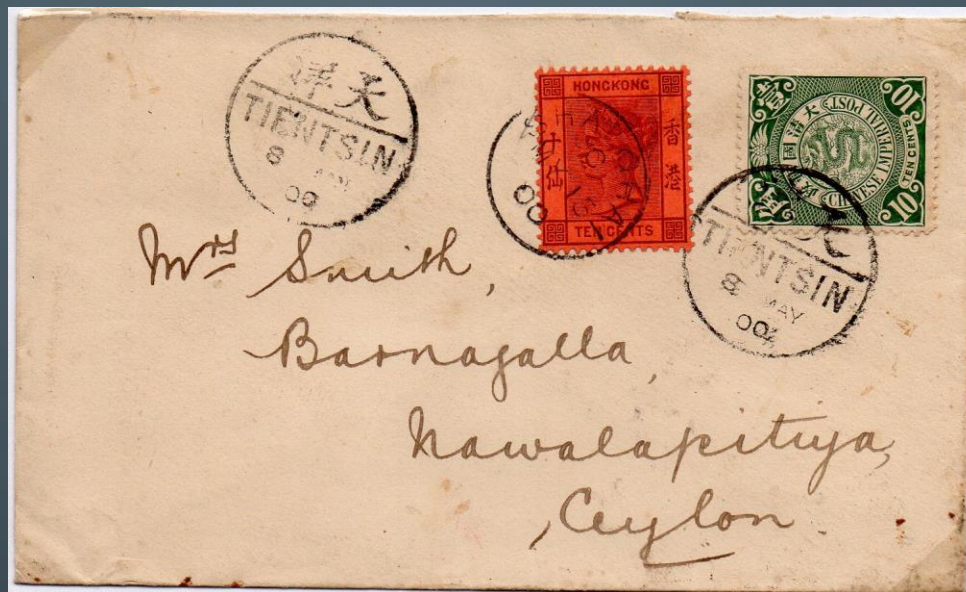 天津
TIENTSIN
8 MAY
00
HONGKONG
香港
TEN CENTS
SHANGHAI
00
大清國郵政
CHINESE IMPERIAL POST
10
TEN CENTS
10
天津
TIENTSIN
8 MAY
00
Mrs Smith,
Barnagalla,
Nawalapitiya,
Ceylon.